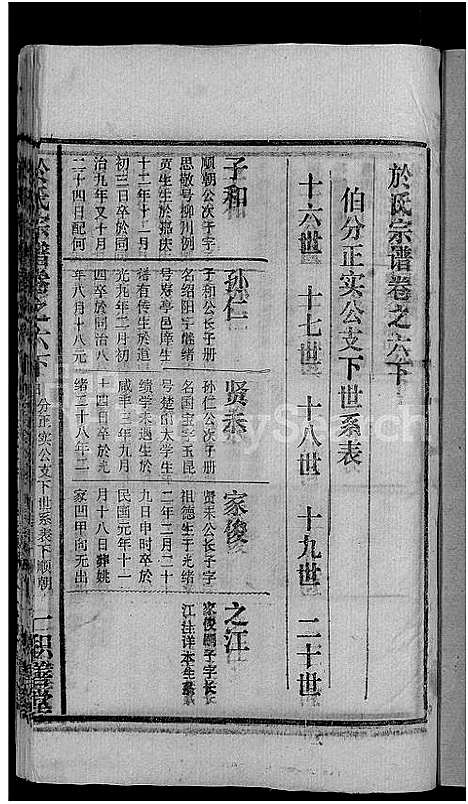 於氏宗谱卷之六下
伯分正实公支下世系表
十六世 十七世 十八世 十九世 二十世
子和
顺朝公次子字
思敬号柳川例
贡生生於嘉庆
十二年十二月
初三日卒於同
治九年又十月
二十四日配何
孙仁
子和公长子册
名绍阳字继绪
号寿亭邑庠生
谱有传生於道
光九年二月初
四卒於同治八
年八月十八元
贤
孙仁公次子册
名国宝字玉昆
号楚阳太学生
绩学未遇生於
咸丰三年九月
十四日卒於光
绪二十八年二
家俊
贤耒公长子字
祖德生于光绪
二年二月二十
九日申时卒於
民国元年十一
月十八日葬姚
家凹甲向无出
之江
家俊嗣子字长
江注详本生系
於氏宗谱卷之六下 分正实公支下世系表下顺朝 一 积善堂